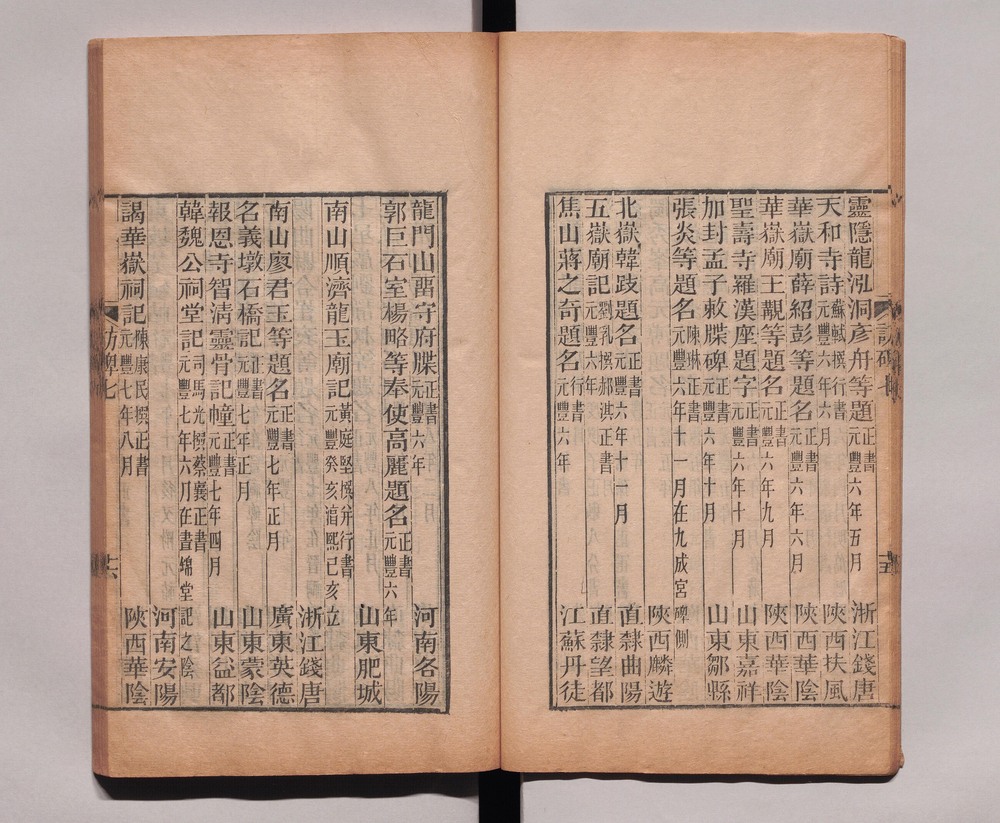 靈隱龍泓洞彥舟等題正書元豐六年五月 浙江錢唐
天和寺詩蘇軾撰行書元豐六年六月 陝西扶風
華嶽廟薛紹彭等題名正書元豐六年六月 陝西華陰
華嶽廟王覿等題名正書元豐六年九月 陝西華陰
聖壽寺羅漢座題字正書元豐六年十月 山東嘉祥
加封孟子敕牒碑正書元豐六年十月 山東鄒縣
張炎等題名陳琳正書元豐六年十一月在九成宮碑側
陝西麟遊
北嶽韓跂題名正書元豐六年十一月 直隸曲陽
五嶽廟記劉乳撰郝淇正書元豐六年 直隸望都
焦山蔣之奇題名行書元豐六年 江蘇丹徒
龍門山酉守府牒正書元豐六年 河南各陽
郭巨石室楊略等奉使高麗題名正書元豐六年
山東肥城
南山順濟龍王廟記黃庭堅撰并行書元豐癸亥湻熙己亥立
浙江錢唐
南山廖君玉等題名正書元豐七年正月 廣東英德
名義墩石橋記正書元豐七年正月 山東蒙陰
報恩寺智淸靈骨記幢正書元豐七年四月 山東益都
韓魏公祠堂記司馬光撰蔡襄正書元豐七年六月在晝綿堂記之陰
河南安陽
謁華嶽祠記陳康民撰正書元豐七年八月 陝西華陰
訪碑七